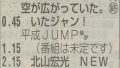 空が広がっていた。
0.45 いたジャン!
平成JUMPが
1.15 (番組は未定です)
2.15 北山宏光 NEW